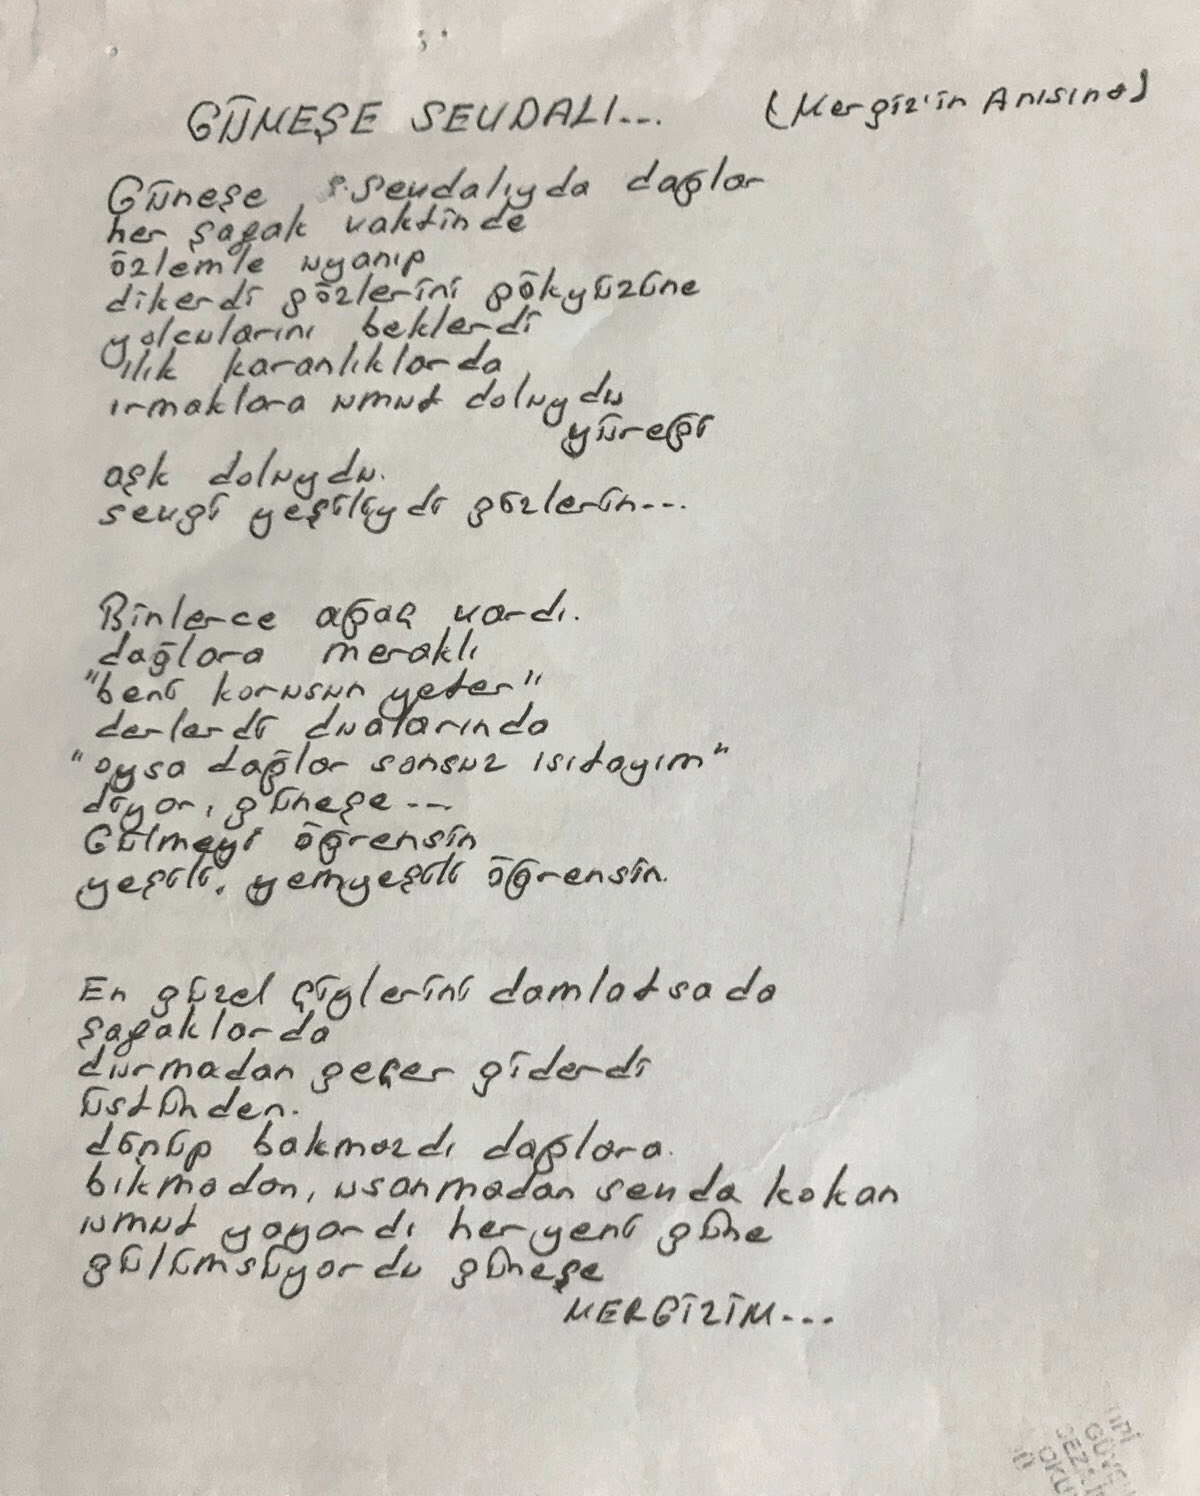 GÜNEŞE SEVDALI... (Mergiz'in Anısına)
Güneşe sevdalıyda dağlar
her şafak vaktinde
özlemle uyanıp
dikerdi gözlerini gökyüzüne
yolcularını beklerdi
ılık karanlıklarda
ırmaklara umut doluydu
yüreği
aşk doluydu.
sevgi yeşiliydi gözlerin...
Binlerce ağaç vardı.
dağlara meraklı
"beni korusun yeter"
derlerdi dualarında
"oysa dağlar sonsuz ısıtayım"
diyor, güneşe...
Gülmeyi öğrensin
yeşili, yemyeşili öğrensin.
En güzel çiylerini damlatsada
şafaklarda
durmadan geçer giderdi
üstünden.
dönüp bakmazdı dağlara.
bıkmadan, usanmadan sevda kokan
umut yayardı her yeni güne
gülümsüyordu güneşe
MERGİZİM...
TİPİ
GÜV
CEZA İ
OKU